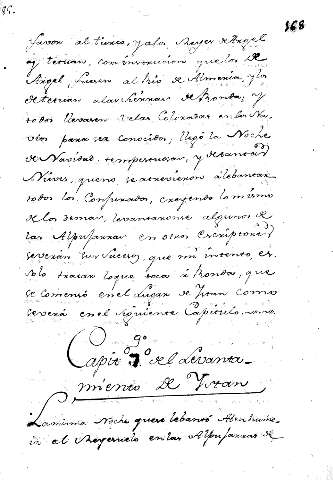 85.
168
favor al turco, y a los Reyes de Argel
y tetuan, con instrucion que los de
Argel, fuesen al Rio de Almeria, y los
de tetuan a las Sierras de Ronda, y
todos llevasen velas Coloradas en los Na
vios para ser conocidos; llegó la Noche
de Navidad tempestuosa, y de tantas
Nieves, que no se atrevieron alebantar
todos los Conjurados, creyendo lo mismo
de los demas, levantaronse algunos de
las Alpujarras en otros escriptores
se veran sus sucesos, que mi intento es
solo tratar lo que toca a Ronda, que
se comensó en el Lugar de Ystan como
se verá en el siguiente Capitulo
9º
Capitº 7º del Levanta-
miento de Ystan
La misma Noche que se lebantó
el Reyesuelo en las Alpujarras de